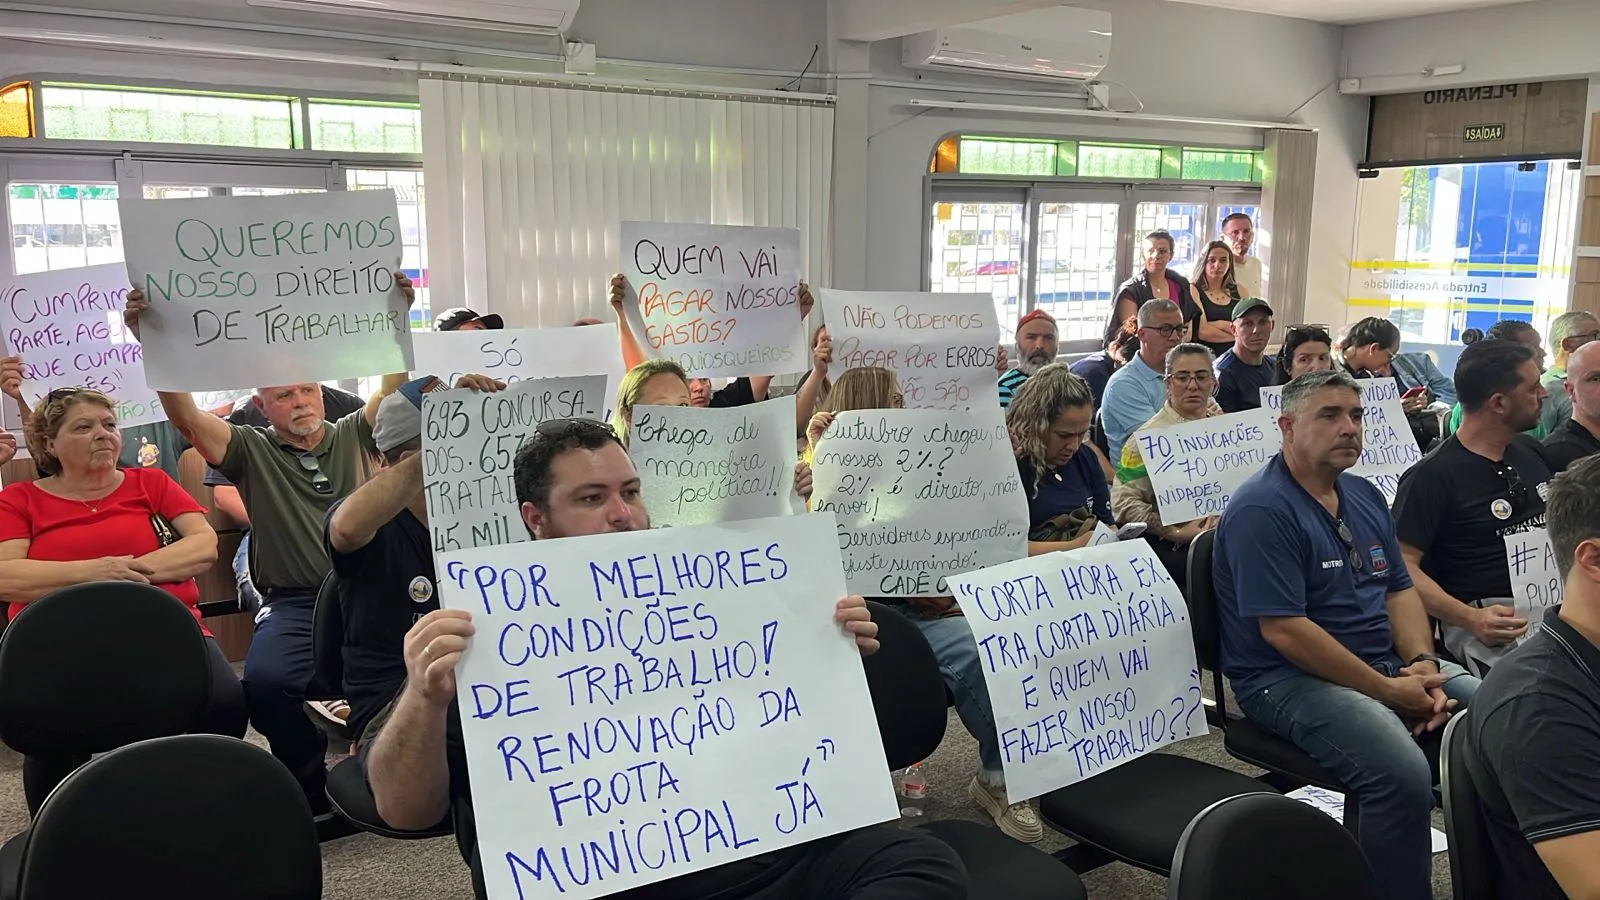 PLENÁRIO
SAÍDA
Entrada Acessibilidade
"CUMPRIM
PARTE, AGO
QUE CUMPR
QUEREMOS
NOSSO DIREITO
DE TRABALHAR!
QUEM VAI
PAGAR NOSSOS
GASTOS?
NÃO PODEMOS
PAGAR POR ERROS
NÃO SÃO
SÓ
693 CONCURSA-
DOS. 657
TRATAD
45 MIL
Chega de
manobra
política!!
Outubro chegou, ca
nossos 2%?
2% é direito, não
favor!
Servidores esperando...
ajuste sumindo:
CADÊ O
70 INDICAÇÕES
70 OPORTU-
NIDADES
ROUB
VIDOR
PRA
CRIA
POLÍTICO
"POR MELHORES
CONDIÇÕES
DE TRABALHO!
RENOVAÇÃO DA
FROTA
MUNICIPAL JÁ"
"CORTA HORA EX.
TRA, CORTA DIÁRIA.
E QUEM VAI
FAZER NOSSO
TRABALHO??"
# A
PUBL